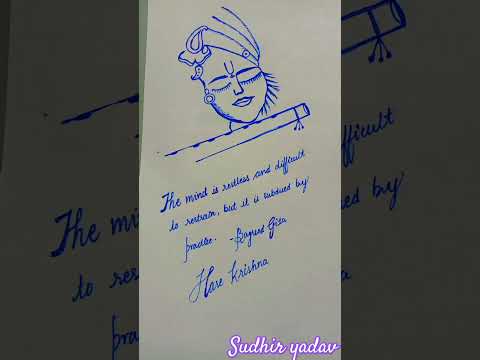 The mind is restless and difficult
to restrain, but it is subdued by
practice. - Bagwad Gita
Hare Krishna
Sudhir yadav